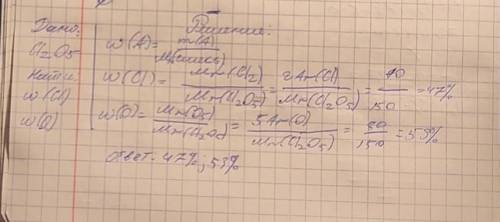 Дано:
Cl₂O₅
Найти
w(Cl)
w(O)
Решение:
w(A) = m(A) / M(смеси)
w(Cl) = Mr(Cl₂) / Mr(Cl₂O₅) = 2Ar(Cl) / Mr(Cl₂O₅) = 70 / 150 = 47%
w(O) = Mr(O₅) / Mr(Cl₂O₅) = 5Ar(O) / Mr(Cl₂O₅) = 80 / 150 = 53%
ответ: 47%; 53%